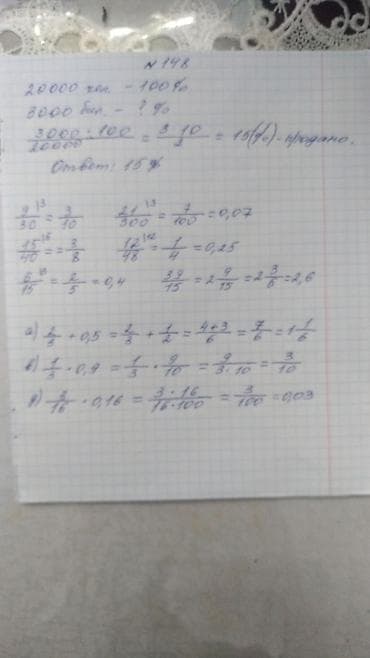 № 148
20000 чел. - 100%
3000 бил. - ? %
3000 · 100 / 20000 = 3 · 10 / 2 = 15(%) - продано.
Ответ: 15 %
9/30 |3 = 3/10   21/300 |3 = 7/100 = 0,07
15/40 |5 = = 3/8   12/48 |12 = 1/4 = 0,25
6/15 |3 = 2/5 = 0,4   39/15 = 2 9/15 = 2 3/5 = 2,6
а) 2/3 + 0,5 = 2/3 + 1/2 = 4+3/6 = 7/6 = 1 1/6
в) 1/3 · 0,9 = 1/3 · 9/10 = 9/3·10 = 3/10
д) 3/16 · 0,16 = 3 · 16/16·100 = 3/100 = 0,03